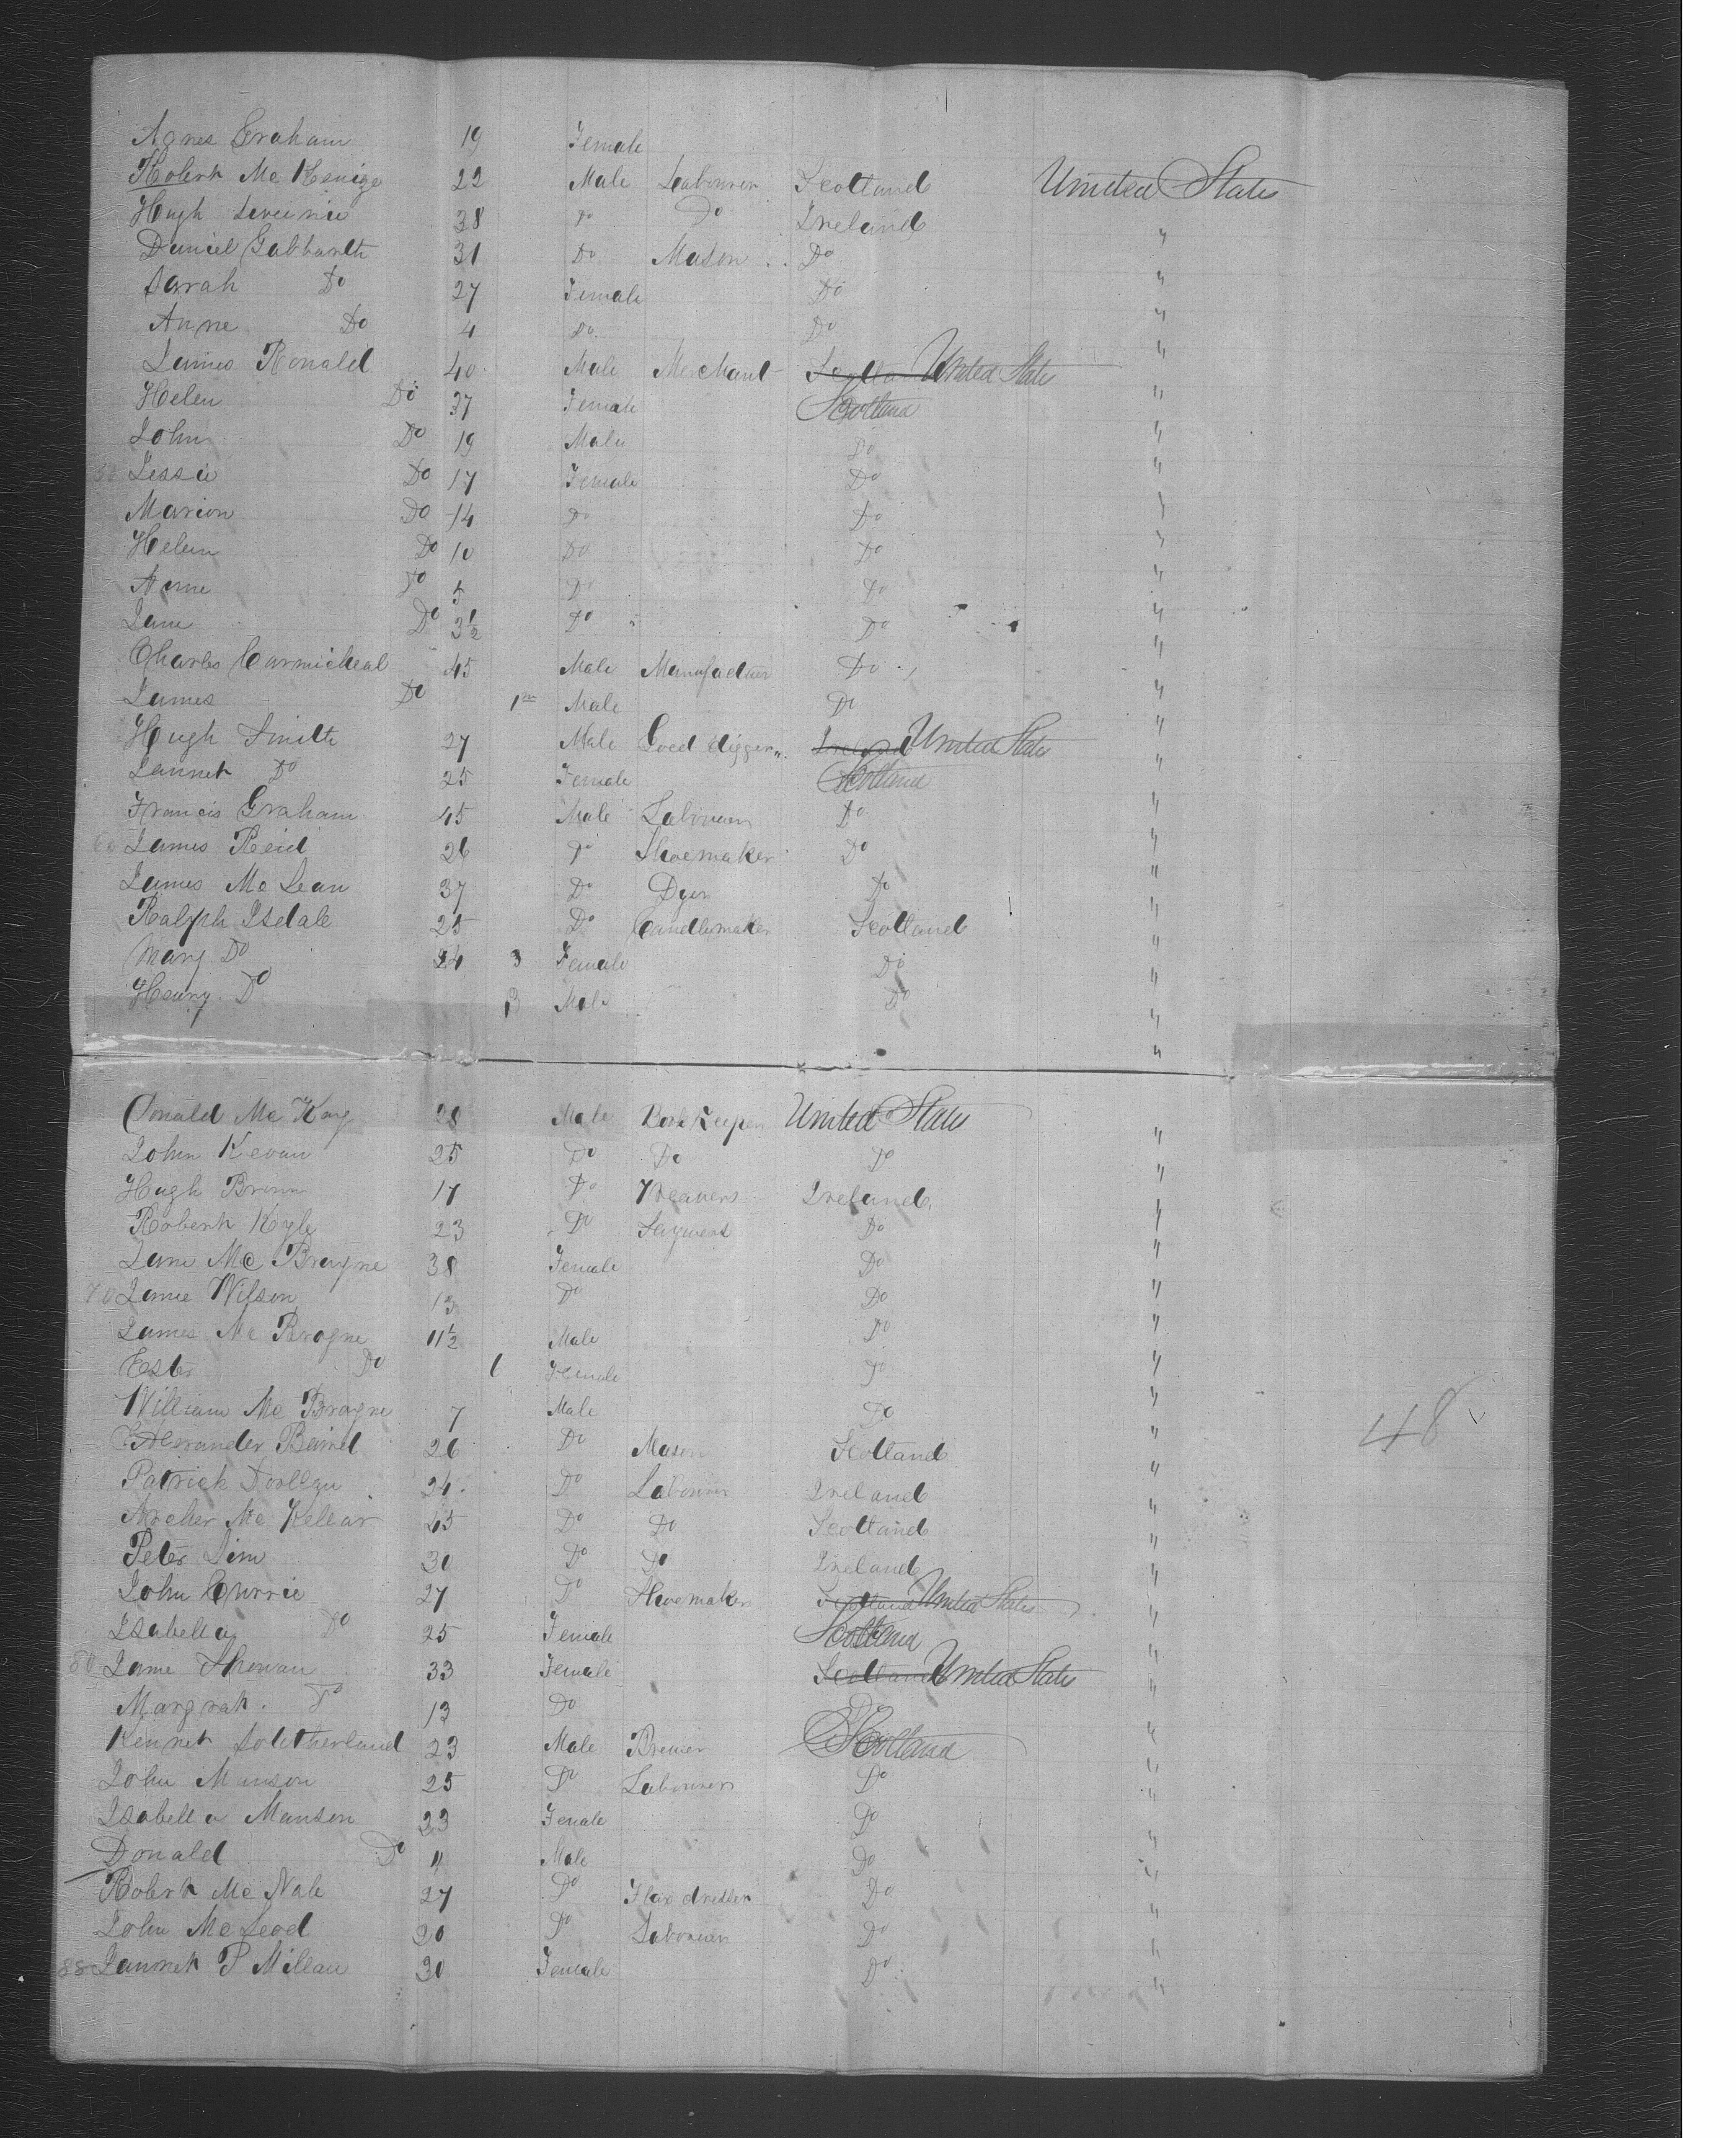 Agnes Graham 19 Female
Robert Mc Kenige 22 Male Labourer Scotland United States
Hugh 38 Do Do Ireland "
Daniel Gabbarth 31 Do Mason Do "
Sarah Do 27 Female Do "
Anne Do 4 Do Do "
James Ronald 40 Male Merchant Scotland United State "
Helen Do 37 Female Scotland "
John Do 19 Male Do "
Jessie Do 17 Female Do "
Marion Do 14 Do Do "
Helen Do 10 Do Do "
Anne Do 5 Do Do "
Jane Do 3½ Do Do "
Charles Carmicheal 45 Male Manufacturer Do "
James Do 1 Male Do "
Hugh Smith 27 Male Goed digger Ireland United State "
Jannet Do 25 Female Scotland "
Francis Graham 45 Male Labourer Do "
60 James Reid 26 Do Shoemaker Do "
James Mc Lean 37 Do Dyer Do "
Ralph Isdale 25 Do Candlemaker Scotland "
Mary Do 24 3 Female Do "
Henry Do 3 Male Do "
Donald Mc Kay 28 Male Book Keeper United States "
John Kevan 25 Do Do Do "
Hugh Brown 17 Do Weavers Ireland "
Robert Kyle 23 Do Do "
Jane Mc Brayne 38 Female Do "
70 Jane Wilson 13 Do Do "
James Mc Brayne 11½ Male Do "
Ester Do 6 Female Do "
William Mc Brayne 7 Male Do " 48
Alexander Beird 26 Do Mason Scotland "
Patrick 24 Do Labourer Ireland "
Archer Mc Kellar 45 Do Do Scotland "
Peter Sim 30 Do Do Ireland "
John Currie 27 Do Shoemaker Scotland United States "
Isabella Do 25 Female Scotland "
80 Jane 33 Female Scotland United State "
Margrat Do 13 Do Do "
Kennet Southerland 23 Male Brewer Scotland "
John Manson 25 Do Labourer Do "
Isabella Manson 23 Female Do "
Donald Do 4 Male Do "
Robert Mc Nab 27 Do Flax dresser Do "
John Mc Leod 20 Do Labourer Do "
88 Jannet P Millan 30 Female Do "